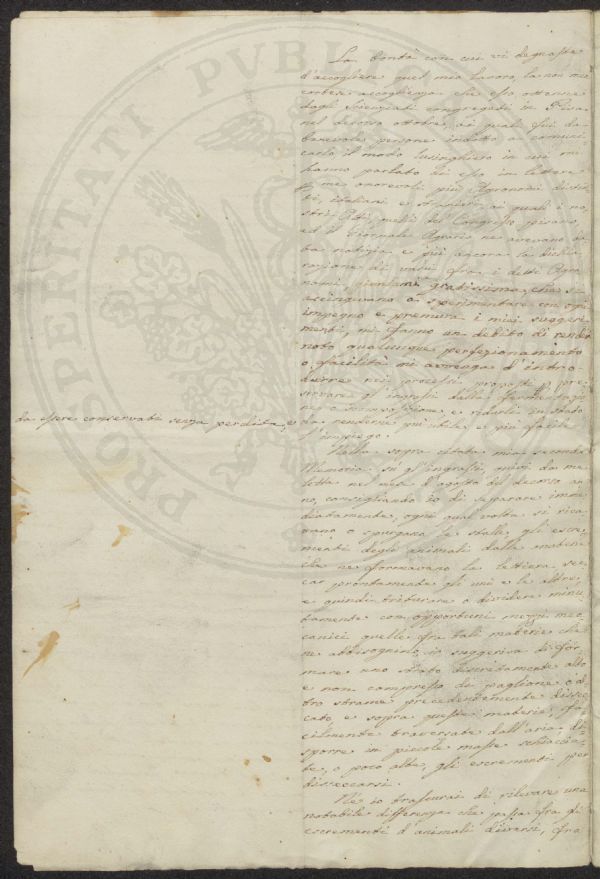 PROSPERITATI PVBLIC
La bontà con cui vi degnaste
d'accogliere quel mio lavoro, la non me
cortese accoglienza che esso ottenne
dagli Scienziati congregati in Pisa
nel decorso ottobre, ai quali fui da
benevole persone indotto a comuni
carlo il modo lusinghiero in cui mi
hanno parlato di esso in lettere
a me onorevoli più Agronomi distin
ti, italiani e stranieri, ai quali i no
stri Atti quelli del Congresso pisano,
ed il Giornale Agrario ne avevano da
ta notizia e più ancora la dichia
razione di varj fra i detti Agro
nomi, giuntami gratissima, che si
accingevano a sperimentare con ogni
impegno e premura i miei suggeri
menti, mi fanno un debito di render
noto qualunque perfezionamento
o facilità mi avvenga d'intro
durre nei processi proposti per
servare gl'ingrassi dalla fermentazio
ne o scomposizione e ridurli in stato
da essere conservati senza perdita, e
da renderne più utile e più facile
l'impiego.
Nella sopra citata mia seconda
Memoria su gl'ingrassi, quivi da me
letta nel mese d'agosto del decorso an
no, consigliando io di separare imme
diatamente, ogni qual volta si rica
vano o spurgano le stalle, gli escre
menti degli animali dalle materie
che ne formavano la lettiera, sec
car prontamente gli uni e le altre,
e quindi triturare o dividere minu
tamente con opportuni mezzi mec
canici quelle fra tali materie che
ne abbisognino, io suggeriva di for
mare uno strato discretamente alto
e non compresso di paglione o d'al
tro strame precedentemente dissec
cato e sopra queste materie, fa
cilmente traversate dall'aria di
sporre in piccole masse schiaccia
te, o poco alte, gli escrementi per
disseccarsi.
Nè io trascurai di rilevare una
notabile differenza che passa fra gli
escrementi d'animali diversi, fra